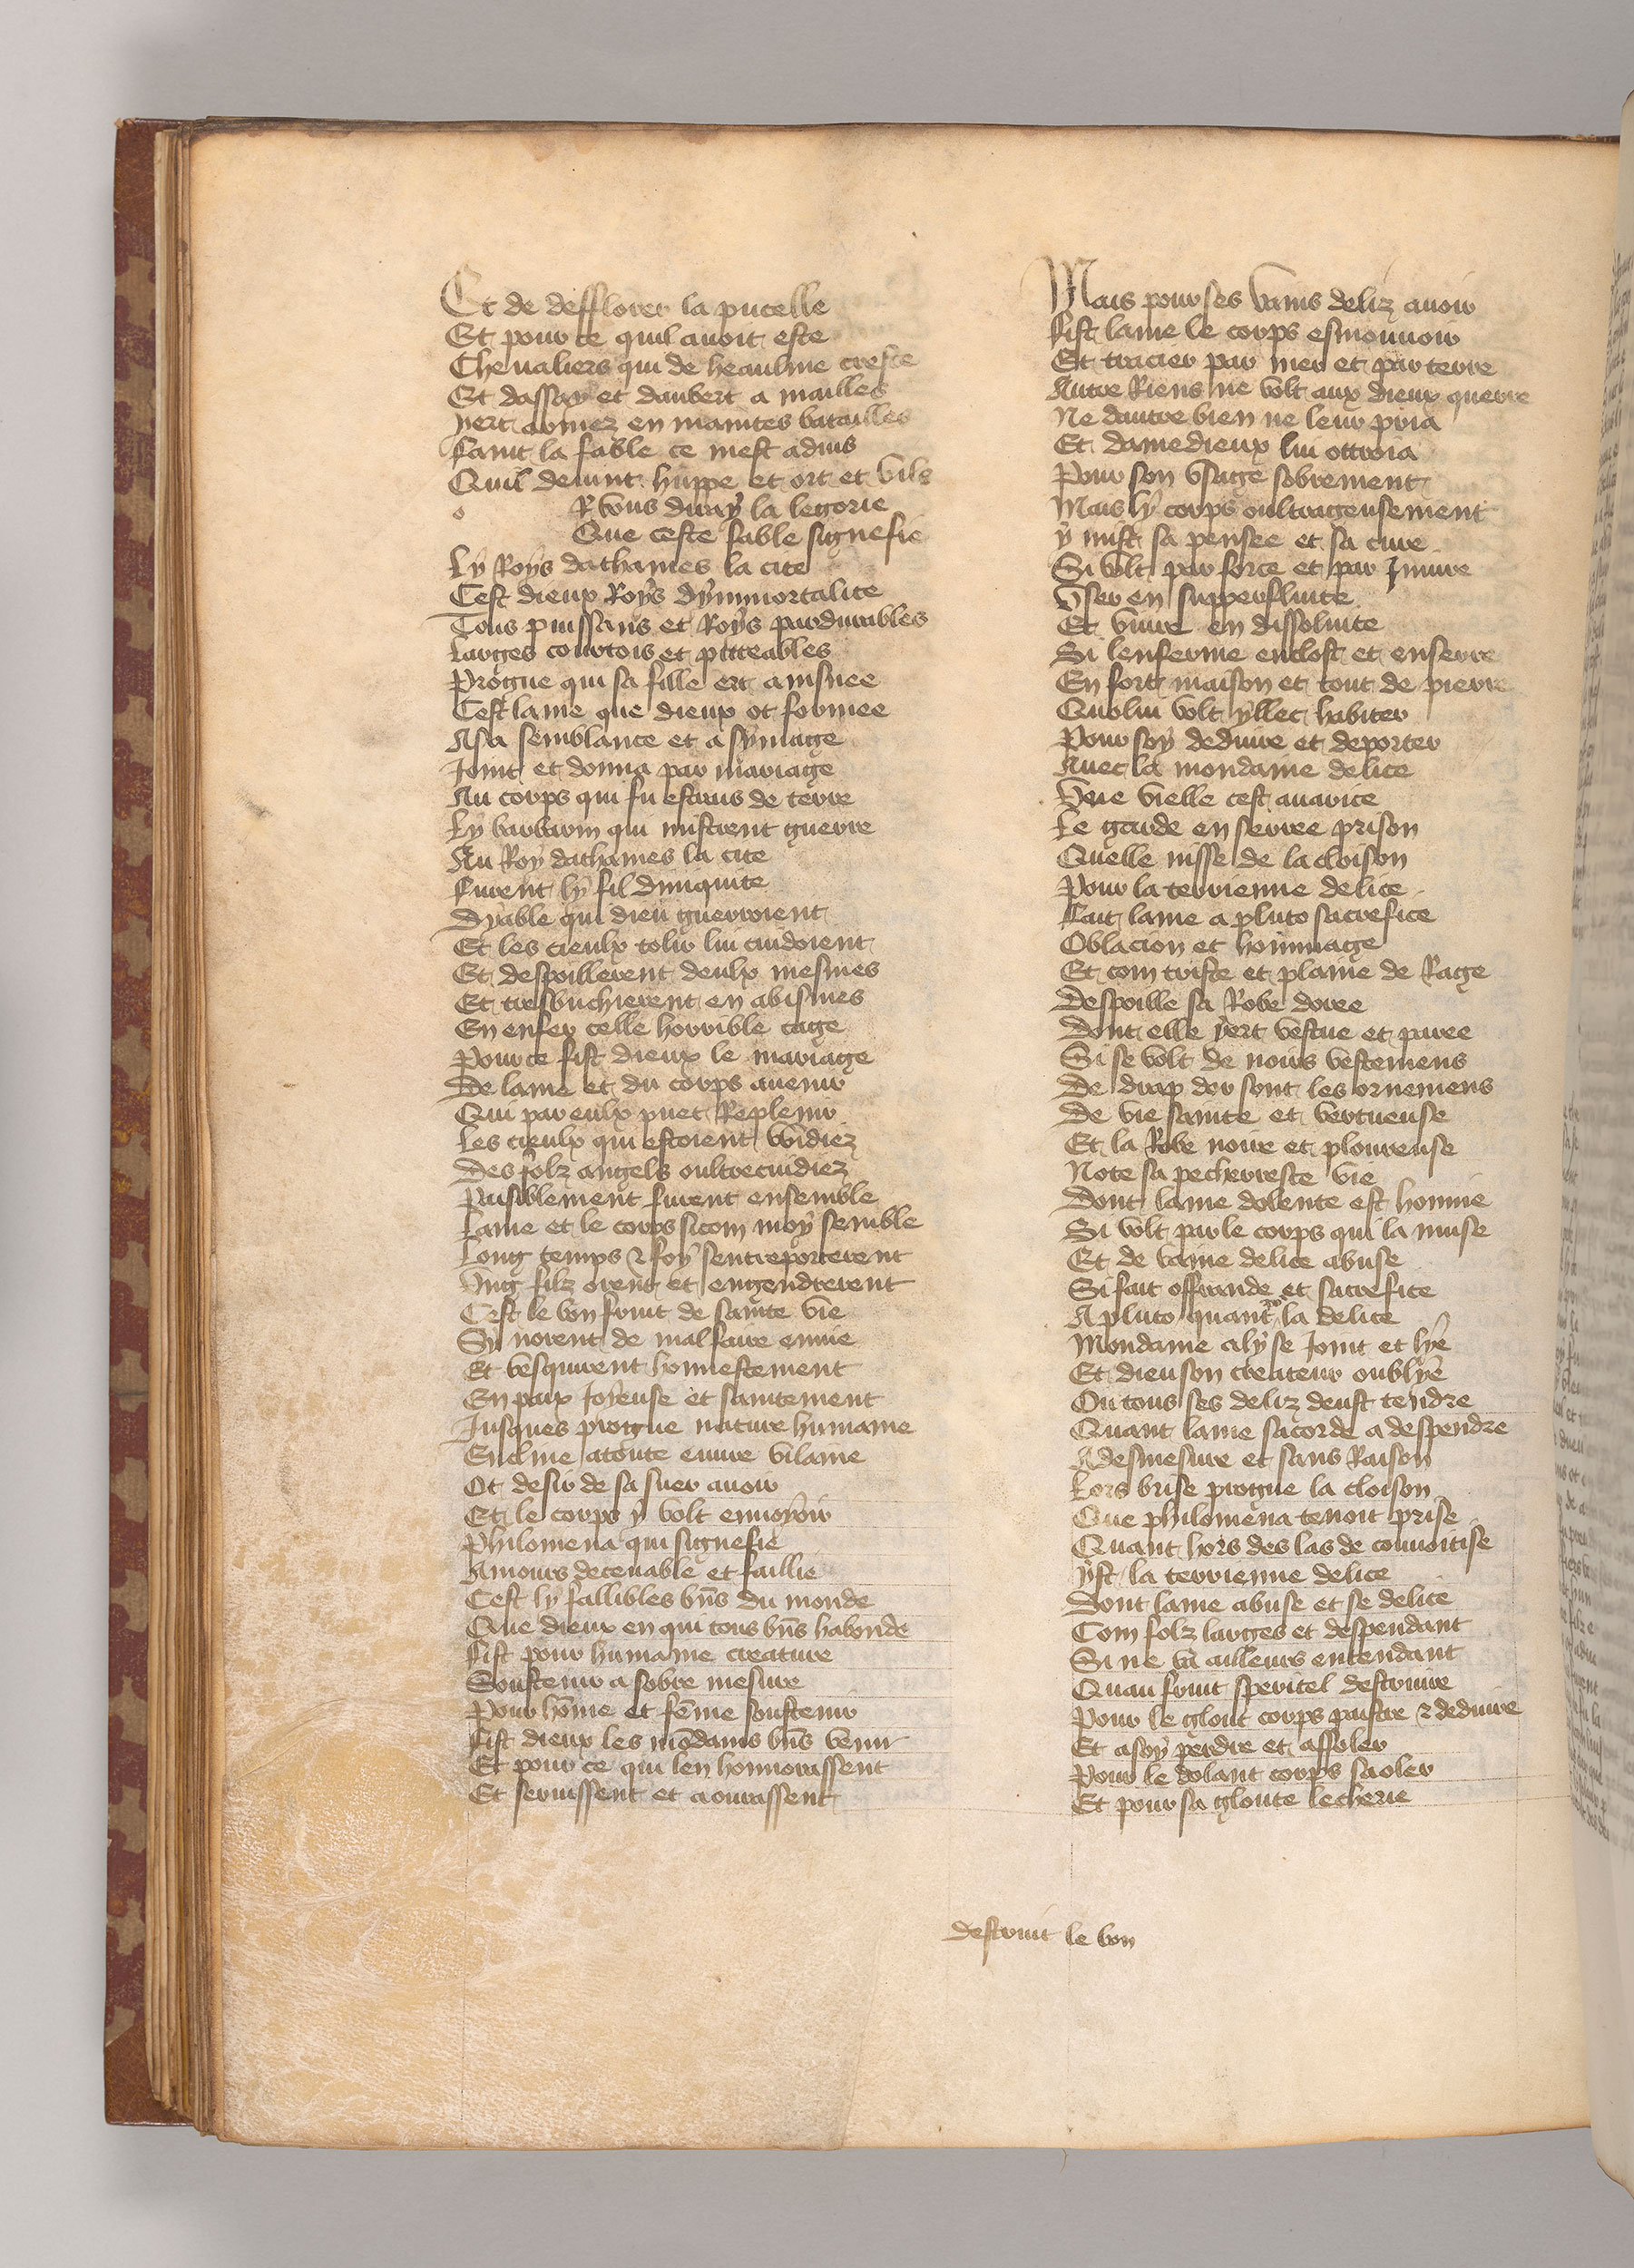 Et de defflorer la pucelle
Et pour ce quil auoit este
Cheualiers qui de heaulme creste
Et dassay et daubert a mailles
Yert armez en maintes batailles
Faint la fable ce mest aduis
Quil deuint huppe et ort et vils
o R vous diray la legorie
Que ceste fable signefie
Ly Roys dathaines la cite
Cest dieux Roys dymmortalite
Tous puissans et Roys pardurables
Larges courtois et piteables
Progne qui sa fille ert ainsnee
Cest lame que dieux ot formee
A sa semblance et a symage
Joint et donna par mariage
Au corps qui fu estrais de terre
Ly barbarin qui mistrent guerre
Au Roy dathaines la cite
Furent ly fil diniquite
Dyable qui dieu guerroient
Et les cieulx tolir lui cuidoient
Et despoillerent deulx mesmes
Et tresbuchierent en abismes
En enfer celle horrible cage
Pour ce fist dieux le mariage
De lame et du corps auenir
Qui par eulx puet Replenir
Les cieulx qui estoient vuidiez
Des folz angels oultrecuidiez
Paisiblement furent ensemble
Lame et le corps sicom moy semble
Long temps & foy sentreporterent
Vng filz orent et engendrerent
Cest le bon fruit de sainte vie
Sy norent de mal faire enuie
Et vesquirent honnestement
En paix Joyeuse et saintement
Jusques progne nature humaine
Encline a toute euure vilaine
Ot desir de sa suer auoir
Et le corps y volt enuoyoir
Philomena qui signefie
Amours deceuable et faillie
Cest ly fallibles bñs du monde
Que dieux en qui tous bñs habonde
Fist pour humaine creature
Soustenir a sobre mesure
Pour hõme et fẽme soustenir
Fist dieux les mõdains bñs venir
Et pour ce qui len honnorassent
Et seruissent et aourassent
Mais pour ses vains deliz auoir
Fist lame le corps esmouuoir
Et tracier par mer et par terre
Autre Riens ne volt aux dieux querre
Ne dautre bien ne leur pria
Et damedieux lui ottroia
Pour son vsage sobrement
Mais ly corps oultrageusement
y mist sa pensee et sa cure
Si volt par force et par Iniure
Vser en supperfluite
Et viure en dissolute
Si lenferme enclost et enserre
En fort maison et tout de pierre
Quolui volt yllec habiter
Pour soy deduire et deporter
Auec la mondaine delice
Vne vielle cest auarice
Le garde en serree prison
Quelle nisse de la cloison
Pour la terrienne delice
Fait lame a pluto sacrefice
Oblacion et hommage
Et com triste et plaine de Rage
Despoille sa Robe doree
Dont elle yert vestue et paree
Si se volt de noirs vestemens
De drap dor sont les ornemens
De vie sainte et vertueuse
Et la Robe noire et ploureuse
Note sa pecherreste vie
Dont lame dolente est honnie
Si volt par le corps qui la muse
Et de vaine delice abuse
Si fait offrande et sacrefice
A pluto quant la delice
Mondaine a ly se Joint et lye
Et dieu son createur oublye
Ou tous ses deliz deust tendre
Quant lame sacorde a despendre
A desmesure et sans Raison
Lors brise progne la cloison
Que philomena tenoit prise
Quant hors des las de conuoitise
yst la terrienne delice
Dont lame abuse et se delite
Com folz larges et despendant
Si ne va ailleurs entendant
Quau fruit speritel destruire
Pour le glout corps paistre & deduire
Et a soy perdre et affoler
Pour le dolant corps saoler
Et pour sa gloute lecherie
destruit le bon